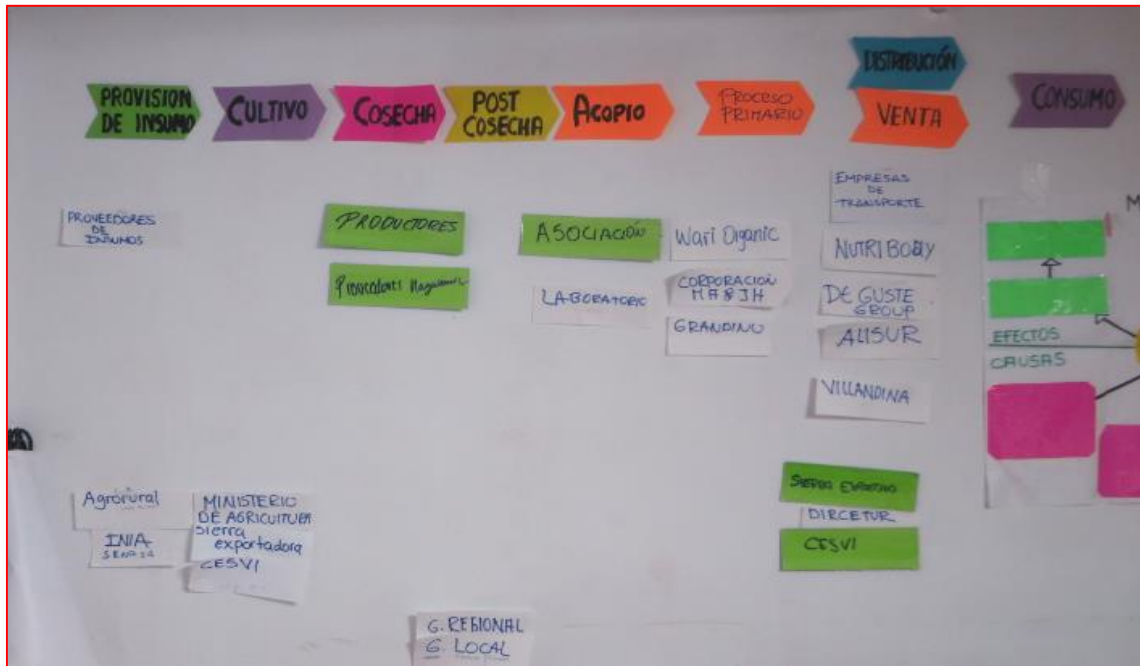 PROVISION
DE INSUMO
CULTIVO
COSECHA
POST
COSECHA
ACOPIO
PROCESO
PRIMARIO
DISTRIBUCIÓN
VENTA
CONSUMO
PROVEEDORES
DE
INSUMOS
PRODUCTORES
ASOCIACIÓN
LABORATORIO
Wari Organic
CORPORACIÓN
MA&JH
GRANDINO
EMPRESAS
DE
TRANSPORTE
NUTRIBODY
DE GUSTE
GROUP
ALISUR
VILLANDINA
M
EFECTOS
CAUSAS
Agrorural
INIA
SENASA
MINISTERIO
DE AGRICULTURA
Sierra
exportadora
CESVI
SIERRA
DIRCETUR
CESVI
G. REGIONAL
G. LOCAL